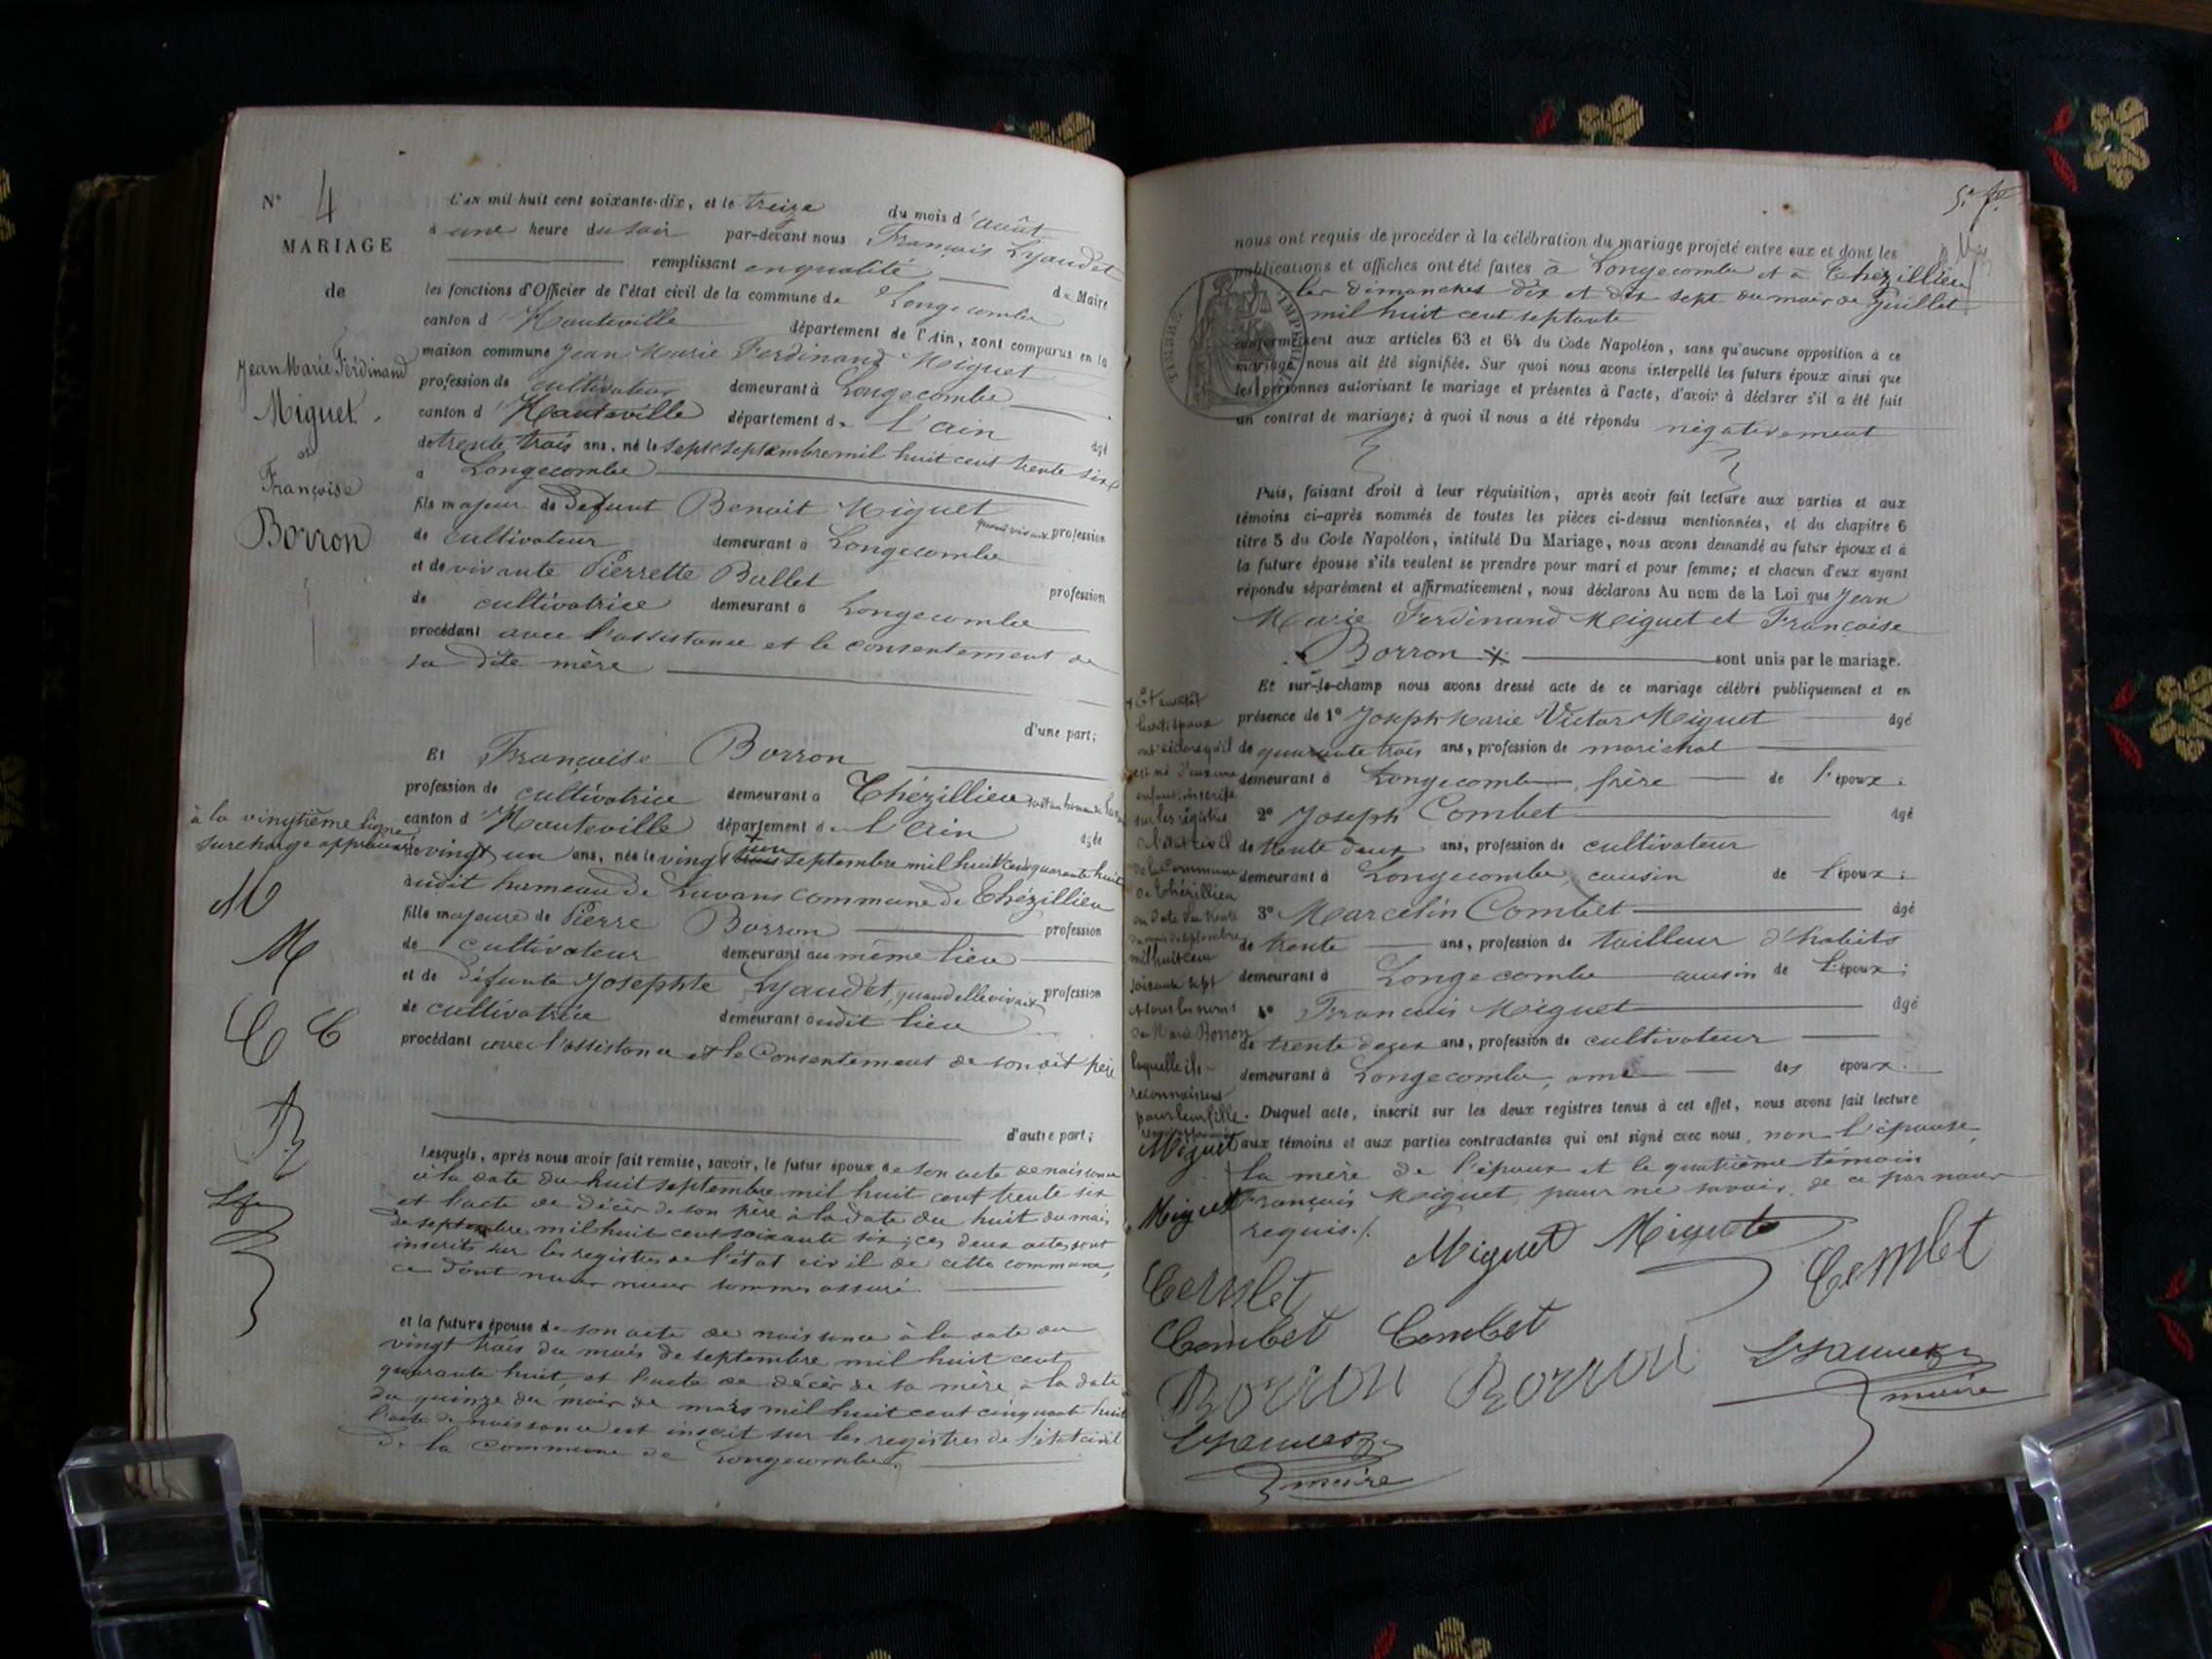 N° 4
MARIAGE
de
Jean Marie Ferdinand
Miguet.
et
Françoise
Borron
L'AN mil huit cent soixante-dix, et le treize du mois d'août
à une heure du soir par-devant nous François Lyaudet
remplissant en qualité de Maire
les fonctions d'Officier de l'état civil de la commune de Longecombe
canton d'Hauteville département de l'Ain, sont comparus en la
maison commune Jean Marie Ferdinand Miguet
profession de cultivateur demeurant à Longecombe
canton d'Hauteville département de l'ain âgé
de trente trois ans, né le sept septembre mil huit cent trente six
à Longecombe
fils majeur de défunt Benoit Miguet quand vivait profession
de cultivateur demeurant à Longecombe
et de vivante Pierrette Ballet profession
de cultivatrice demeurant à Longecombe
procédant avec l'assistance et le consentement de
sa dite mère
d'une part;
Et Françoise Borron
profession de cultivatrice demeurant à Thézillieu
canton d'Hauteville département de l'Ain âgée
à la vingtième ligne
surcharge approuvée
de vingt un ans, née le vingt septembre mil huit cent quarante huit
audit hameau de Lavans commune de Thézillieu
fille majeure de Pierre Borron profession
de cultivateur demeurant au même lieu
et de défunte Josephte Lyaudet, quand elle vivait profession
de cultivatrice demeurant audit lieu
procédant avec l'assistance et le Consentement de son dit père
M
M
C C
B
d'autre part;
Lesquels, après nous avoir fait remise, savoir, le futur époux de son acte de naissance
à la date du huit septembre mil huit cent trente six
et l'acte de décès de son père à la date du huit du mois
de septembre mil huit cent soixante six; ces deux actes sont
inscrits sur les registres de l'état civil de cette commune,
ce dont nous nous sommes assuré.
et la future épouse de son acte de naissance à la date du
vingt trois du mois de septembre mil huit cent
quarante huit, et l'acte de décès de sa mère à la date
du quinze du mois de mars mil huit cent cinquante huit
l'acte de naissance est inscrit sur les registres de l'état civil
de la commune de Longecombe.
nous ont requis de procéder à la célébration du mariage projeté entre eux et dont les
publications et affiches ont été faites à Longecombe et à Thézillieu
les dimanches dix et dix sept du mois de Juillet
mil huit cent septante
TIMBRE IMPERIAL
conformément aux articles 63 et 64 du Code Napoléon, sans qu'aucune opposition à ce
mariage nous ait été signifiée. Sur quoi nous avons interpellé les futurs époux ainsi que
les personnes autorisant le mariage et présentes à l'acte, d'avoir à déclarer s'il a été fait
un contrat de mariage; à quoi il nous a été répondu négativement
Puis, faisant droit à leur réquisition, après avoir fait lecture aux parties et aux
témoins ci-après nommés de toutes les pièces ci-dessus mentionnées, et du chapitre 6
titre 5 du Code Napoléon, intitulé Du Mariage, nous avons demandé au futur époux et à
la future épouse s'ils veulent se prendre pour mari et pour femme; et chacun d'eux ayant
répondu séparément et affirmativement, nous déclarons Au nom de la Loi que Jean
Marie Ferdinand Miguet et Françoise
Borron sont unis par le mariage.
Et sur-le-champ nous avons dressé acte de ce mariage célébré publiquement et en
présence de 1° Joseph Marie Victor Miguet âgé
de quarante trois ans, profession de maréchal
demeurant à Longecombe, frère de l'époux.
2° Joseph Combet âgé
de trente deux ans, profession de cultivateur
demeurant à Longecombe, cousin de l'époux;
3° Marcelin Combet âgé
de trente ans, profession de tailleur d'habits
demeurant à Longecombe cousin de l'époux;
4° François Miguet âgé
de trente deux ans, profession de cultivateur
demeurant à Longecombe, ami des époux.
Duquel acte, inscrit sur les deux registres tenus à cet effet, nous avons fait lecture
aux témoins et aux parties contractantes qui ont signé avec nous, non l'épouse,
la mère de l'époux et le quatrième témoin
François Miguet, pour ne savoir, de ce par nous
requis./.
Et aussitôt
les dits époux
ont déclaré qu'il
est né d'eux une
enfant, inscrite
sur les régistres
de l'état civil
de la Commune
de Thézillieu
en date du trente
du mois de septembre
mil huit cent
soixante sept
et sous les noms
de Marie Borron
laquelle ils
reconnaissent
pour leur fille.
Miguet
Miguet
Miguet Miguet
Combet Combet
Combet Combet
Borron Borron
Lyaudet maire
Lyaudet maire